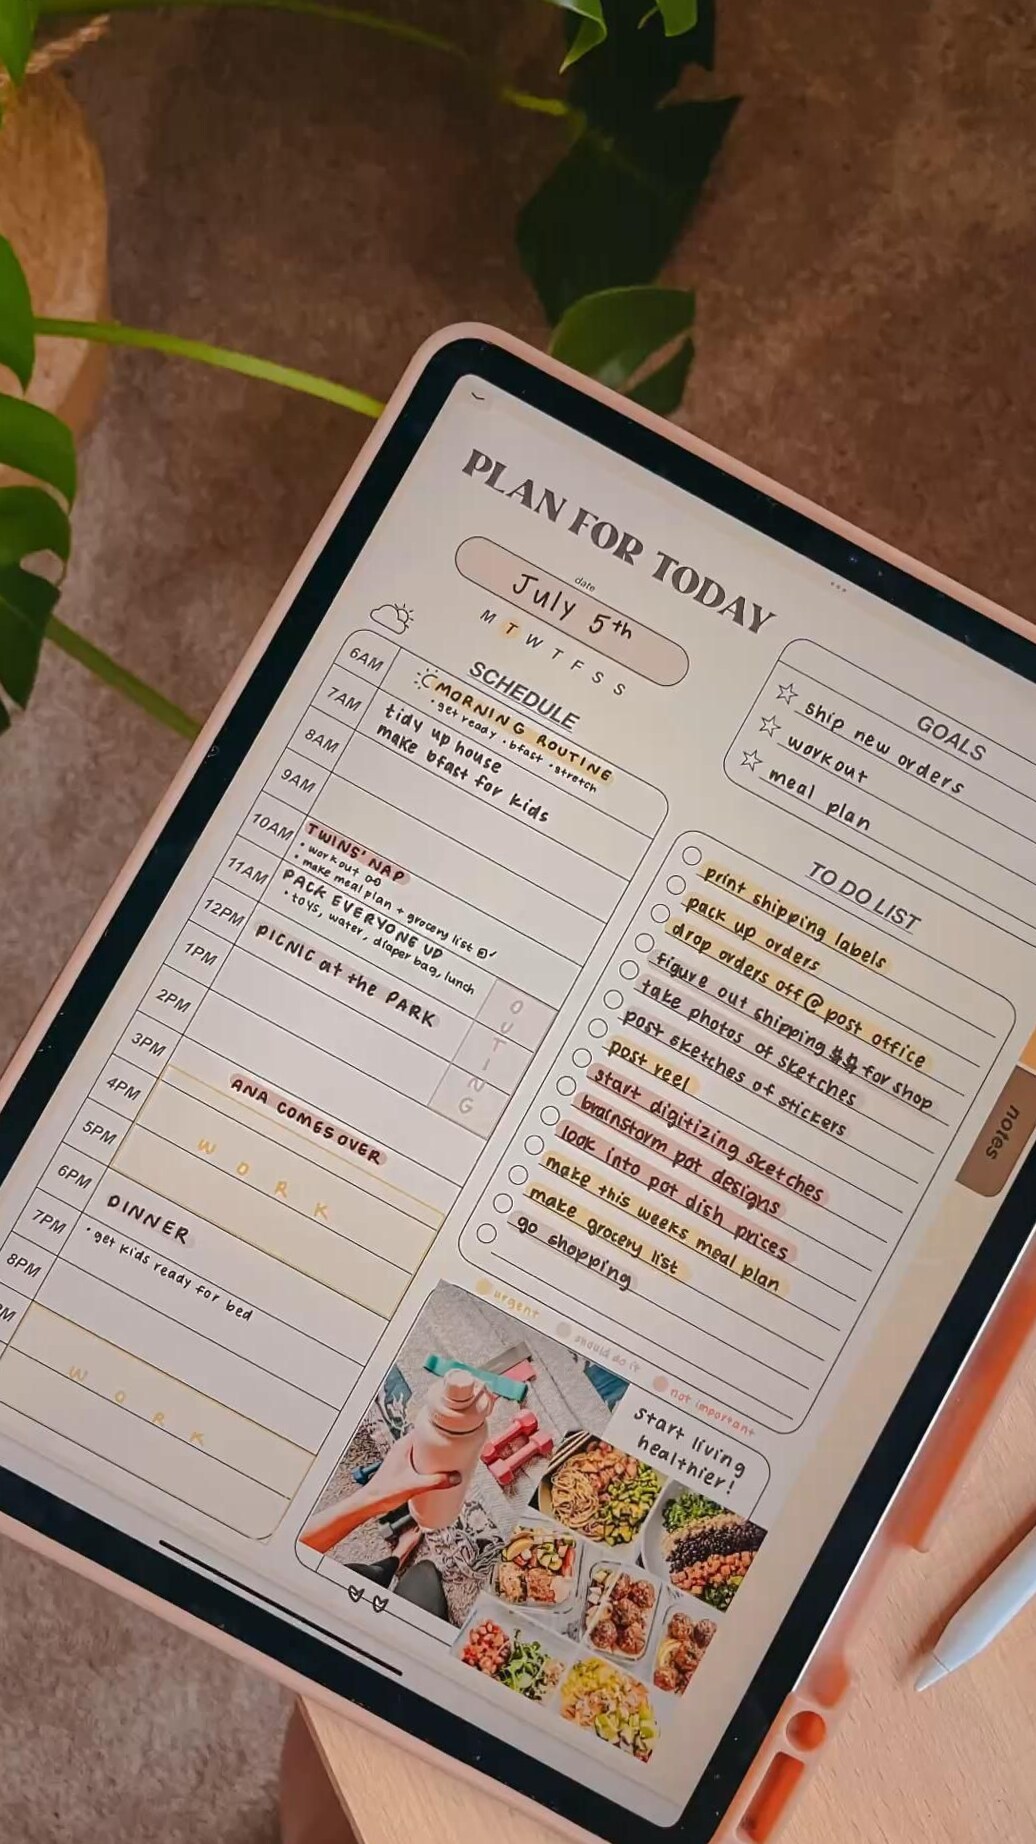 PLAN FOR TODAY
date
July 5th
M T W T F S S
SCHEDULE
6AM
MORNING ROUTINE
• get ready • bfast • stretch
7AM
tidy up house
make bfast for kids
8AM
9AM
10AM
TWINS' NAP
• workout
• make meal plan + grocery list
11AM
PACK EVERYONE UP
• toys, water, diaper bag, lunch
12PM
PICNIC at the PARK
OUTING
1PM
2PM
3PM
ANA COMES OVER
4PM
WORK
5PM
6PM
DINNER
7PM
• get kids ready for bed
8PM
PM
WORK
GOALS
ship new orders
workout
meal plan
TO DO LIST
print shipping labels
pack up orders
drop orders off @ post office
figure out shipping $$ for shop
take photos of sketches
post sketches of stickers
post reel
start digitizing sketches
brainstorm pot designs
look into pot dish prices
make this weeks meal plan
make grocery list
go shopping
urgent
should do it
not important
start living
healthier!
notes